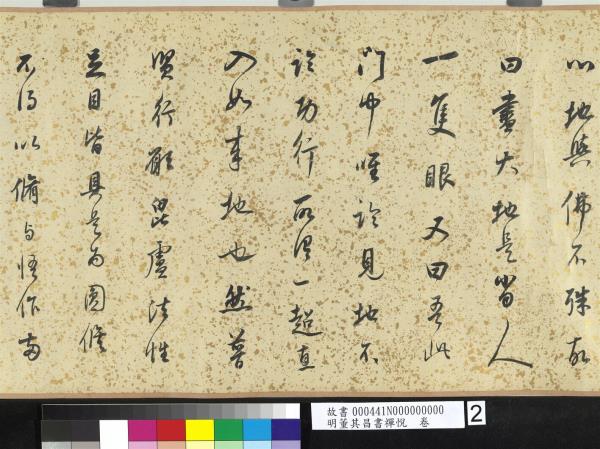 心地與佛不殊故
曰盡大地是當人
一隻眼又曰吾此
門中唯論見地不
論功行所謂一超直
入如來地也然普
賢行願毘盧法性
足目皆具是為圓修
不得以脩與悟作両
故書 000441N000000000
明董其昌書禪悅 卷
2